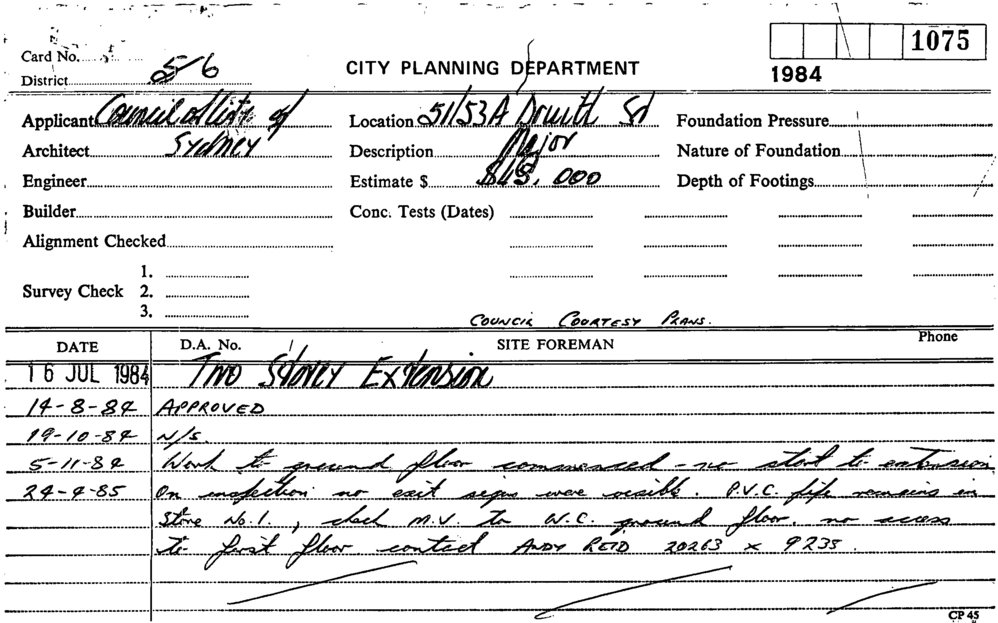 Card No.
District 5/6
CITY PLANNING DEPARTMENT
1075
1984
Applicant Council of City of
Location 51/53A Druitt St
Foundation Pressure
Architect Sydney
Description Major
Nature of Foundation
Engineer
Estimate $ $45,000
Depth of Footings
Builder
Conc. Tests (Dates)
Alignment Checked
1.
Survey Check 2.
3.
COUNCIL COURTESY PLANS.
DATE D.A. No. SITE FOREMAN Phone
16 JUL 1984 Two Storey Extension
14-8-84 APPROVED
19-10-84 N/S.
5-11-84 Work to ground floor commenced - no start to extension
24-4-85 On inspection no exit signs were visible. P.V.C. pipe remains in
Store No.1., check M.V. to W.C. ground floor, no access
to first floor contact ANDY REID 20263 x 9235.
CP 45